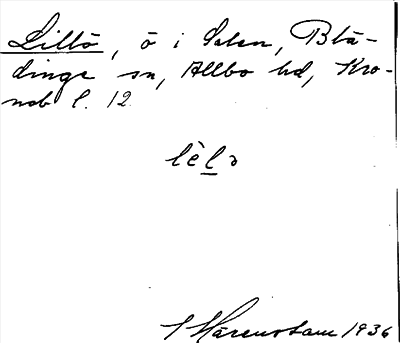 Lillö, ö i Salen, Blä-
dinge sn, Allbo hd, Kro-
nob l. 12.
lèlə
1936